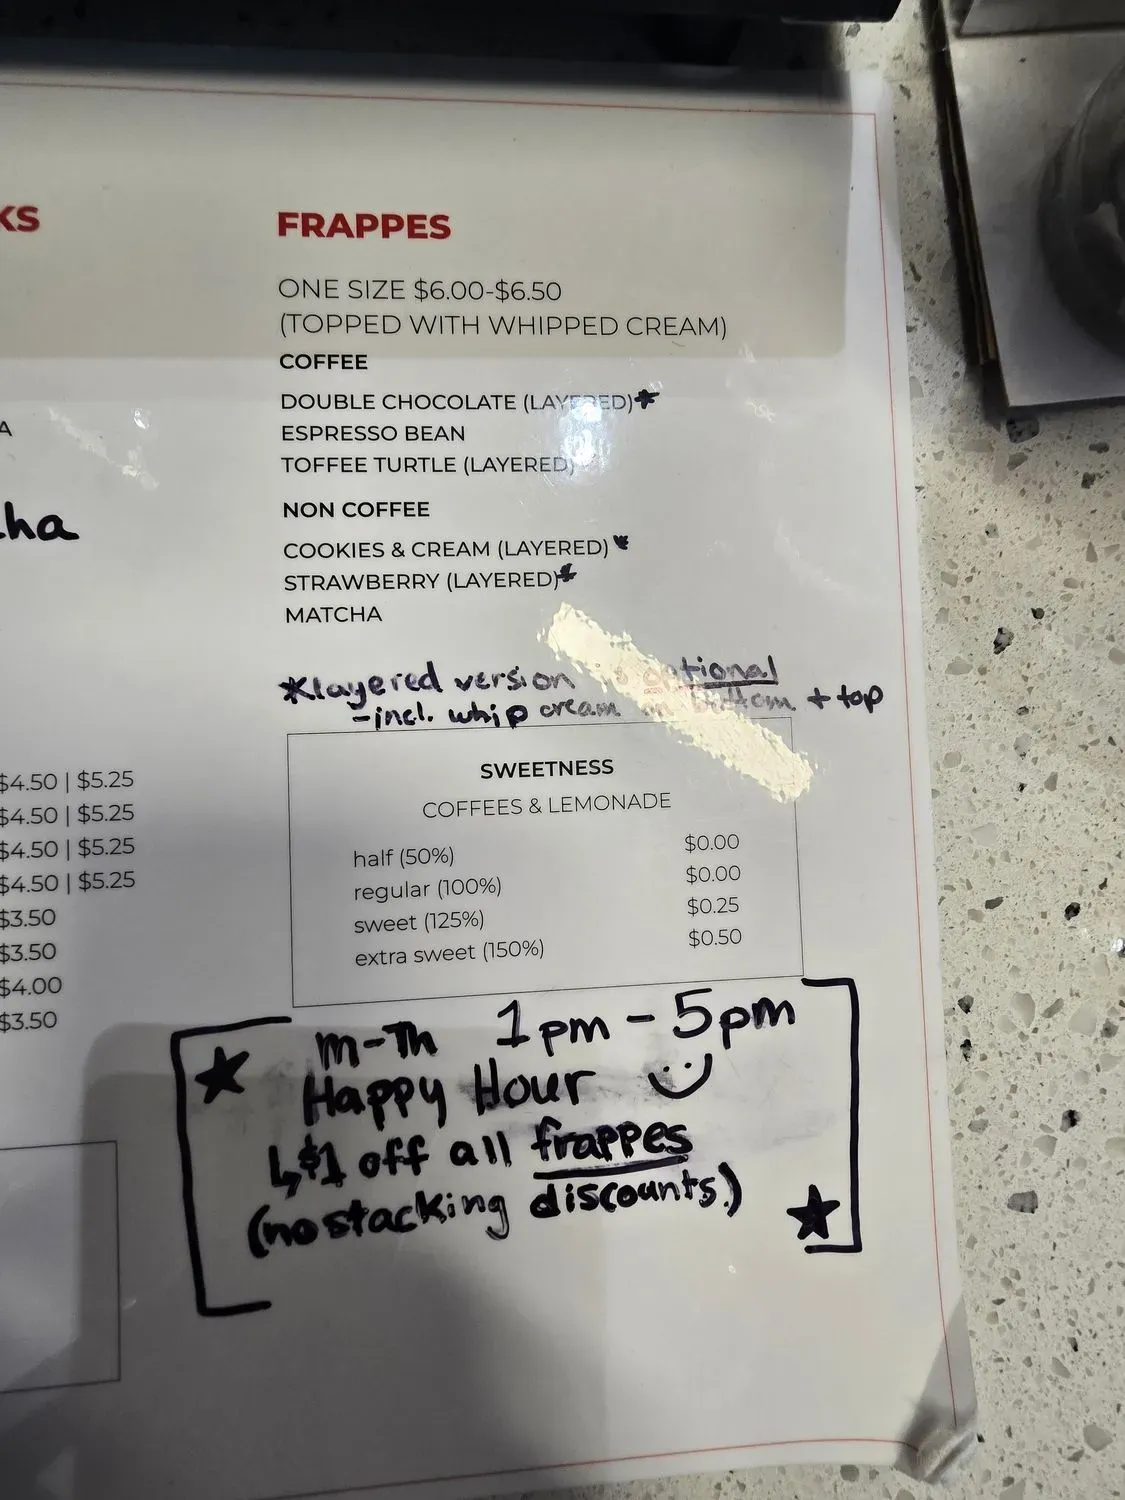 KS
FRAPPES
ONE SIZE $6.00-$6.50
(TOPPED WITH WHIPPED CREAM)
COFFEE
DOUBLE CHOCOLATE (LAYERED)*
ESPRESSO BEAN
TOFFEE TURTLE (LAYERED)
NON COFFEE
COOKIES & CREAM (LAYERED)*
STRAWBERRY (LAYERED)*
MATCHA
A
cha
*layered version is optional
-incl. whip cream on bottom + top
$4.50 | $5.25
$4.50 | $5.25
$4.50 | $5.25
$4.50 | $5.25
$3.50
$3.50
$4.00
$3.50
SWEETNESS
COFFEES & LEMONADE
half (50%) $0.00
regular (100%) $0.00
sweet (125%) $0.25
extra sweet (150%) $0.50
M-Th 1pm - 5pm
Happy Hour
↳$1 off all frappes
(no stacking discounts.)